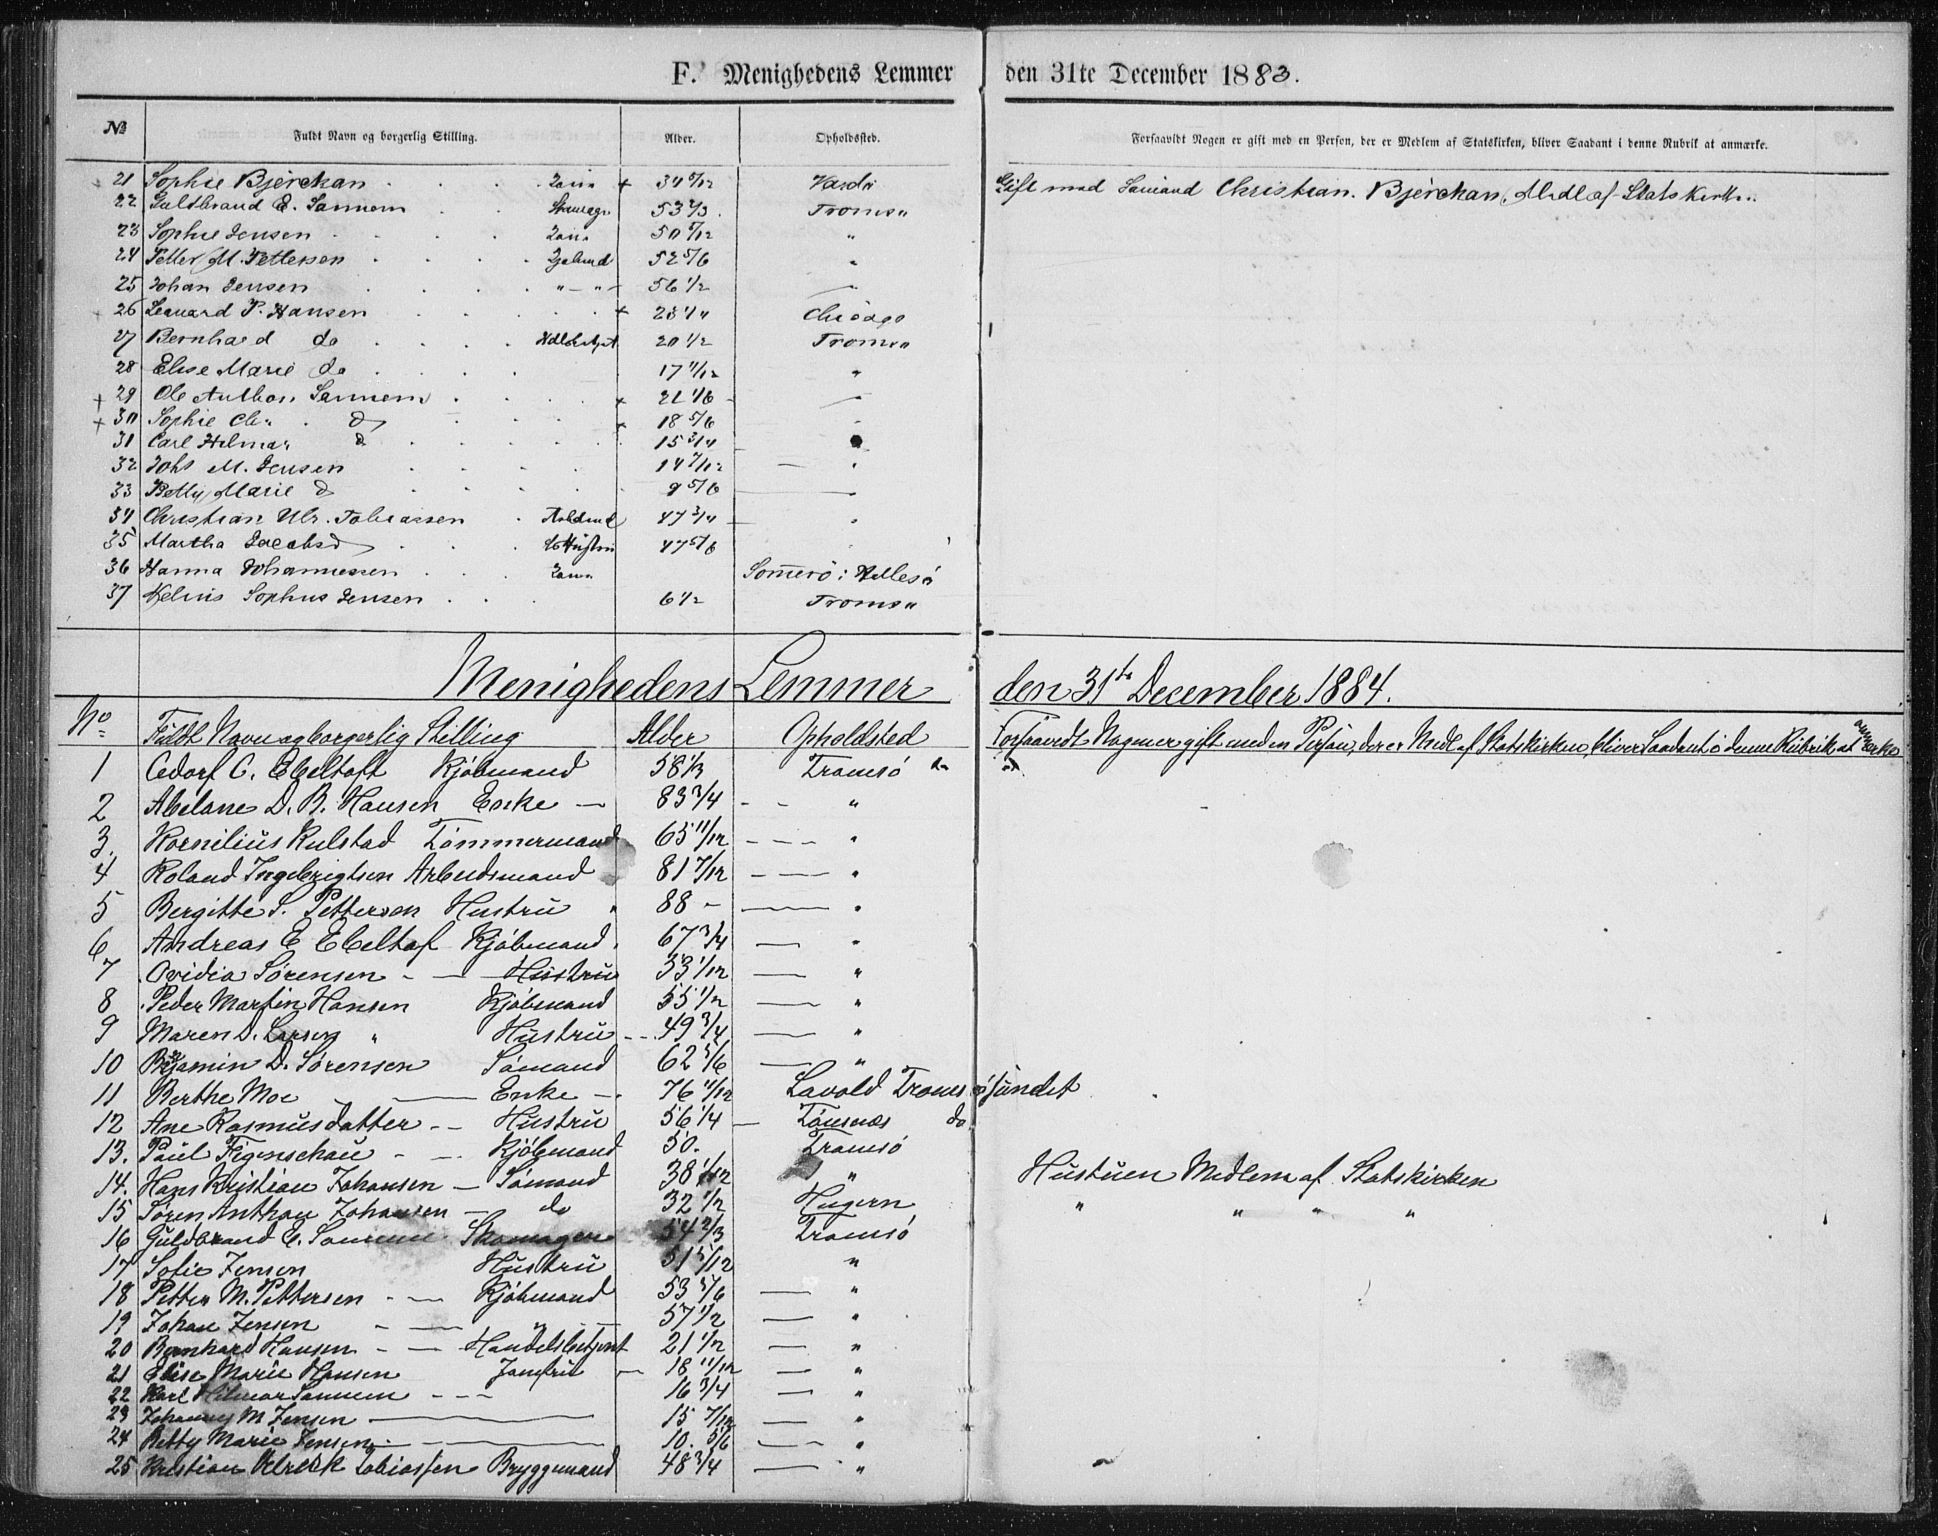 F. Menighedens Lemmer den 31te December 1883.
№ Fuldt Navn og borgerlig Stilling. Alder. Opholdssted. Forsaavidt Nogen er gift med en Person, der er Medlem af Statskirken, bliver Saadant i denne Rubrik at anmærke.
21 Sophie Bjerckan + 34 Vardø Gift med Sømand Christian Bjerckan, Medl af Statskirken
22 Guldbrand E. Sannem 53 2/3 Tromsø
23 Sophie Jensen 50 5/12 "
24 Petter M. Pettersen 52 5/6 "
25 Johan Jensen " - " - 56 1/2
26 Leonard P. Hansen + Chicago
27 Bernhard do 20 1/2 Tromsø
28 Elise Marie do 17 11/12 "
+ 29 Ole Anthon Sannem + 21 1/6
+ 30 Sophie + 18 5/6
31 Carl Hilmar 15 3/4
32 Johs M. Jensen 14 7/12
33 Betty Marie 9 5/6
34 Christian Ulr. Tobiassen 47 3/4
35 Martha 47 5/6
36 Hanna Johannessen Sommerø i Hillesø
37 Sophus Jensen 6 1/2 Tromsø
Menighedens Lemmer den 31te December 1884.
No Fuldt Navn og borgerlig Stilling Alder Opholdsted Forsaavidt Nogen er gift med en Person, der er Medl af Statskirken, bliver Saadant i denne Rubrik at anmærke
1 Cedorf C. Ebeltoft Kjøbmand 58 1/3 Tromsø
2 Abelone D. B. Hansen Enke - 83 3/4 - - "
3. Kornilius Kulstad Tømmermand 65 11/12 - - - "
4 Roland Ingebrigtsen Arbeidsmand 81 7/12 - - "
5 Bergitte S. Pettersen Hustru 88 - "
6 Andreas E Ebeltof Kjøbmand. 67 3/4 - "
7 Ovidia Sørensen - - Hustru 53 1/12 - "
8 Peder Martin Hansen Kjøbmand 55 1/2 - "
9 Maren D. Larsen " Hustru - - 49 3/4 - "
10 Benjamin D. Sørensen Sømand 62 5/6 - "
11 Berthe Moe - Enke - 76 11/12 Lavold Tromsøsundet
12 Ane Rasmusdatter - - Hustru 56 1/4 - Tønsnæs do
13. Paul Figenschau - - Kjøbmand 50. Tromsø
14. Hans Kristian Johansen - Sømand 38 1/12 " Hustuen Medlem af Statskirken
15 Søren Anthon Johansen - do 32 1/2 " " " "
16 Guldbrand E. Sannem Skomager 54 2/3 Tromsø
17 Sofie Jensen Hustru 51 5/12 "
18 Petter M. Pettersen - - Kjøbmand 53 5/6 - "
19 Johan Jensen - - " 57 1/2 - "
20 Bernhard Hansen - - Handelsbetjent 21 1/2 - "
21 Elise Marie Hansen Jomfru - 18 11/12 - "
22 Karl Hilmar Sannem - - - 16 3/4 - "
23 Johannes M Jensen - 15 7/12 - "
24 Betty Marie Jensen - 10. 5/6 - "
25 Kristian Ulrick Tobiassen Bryggemand 48 3/4 - "